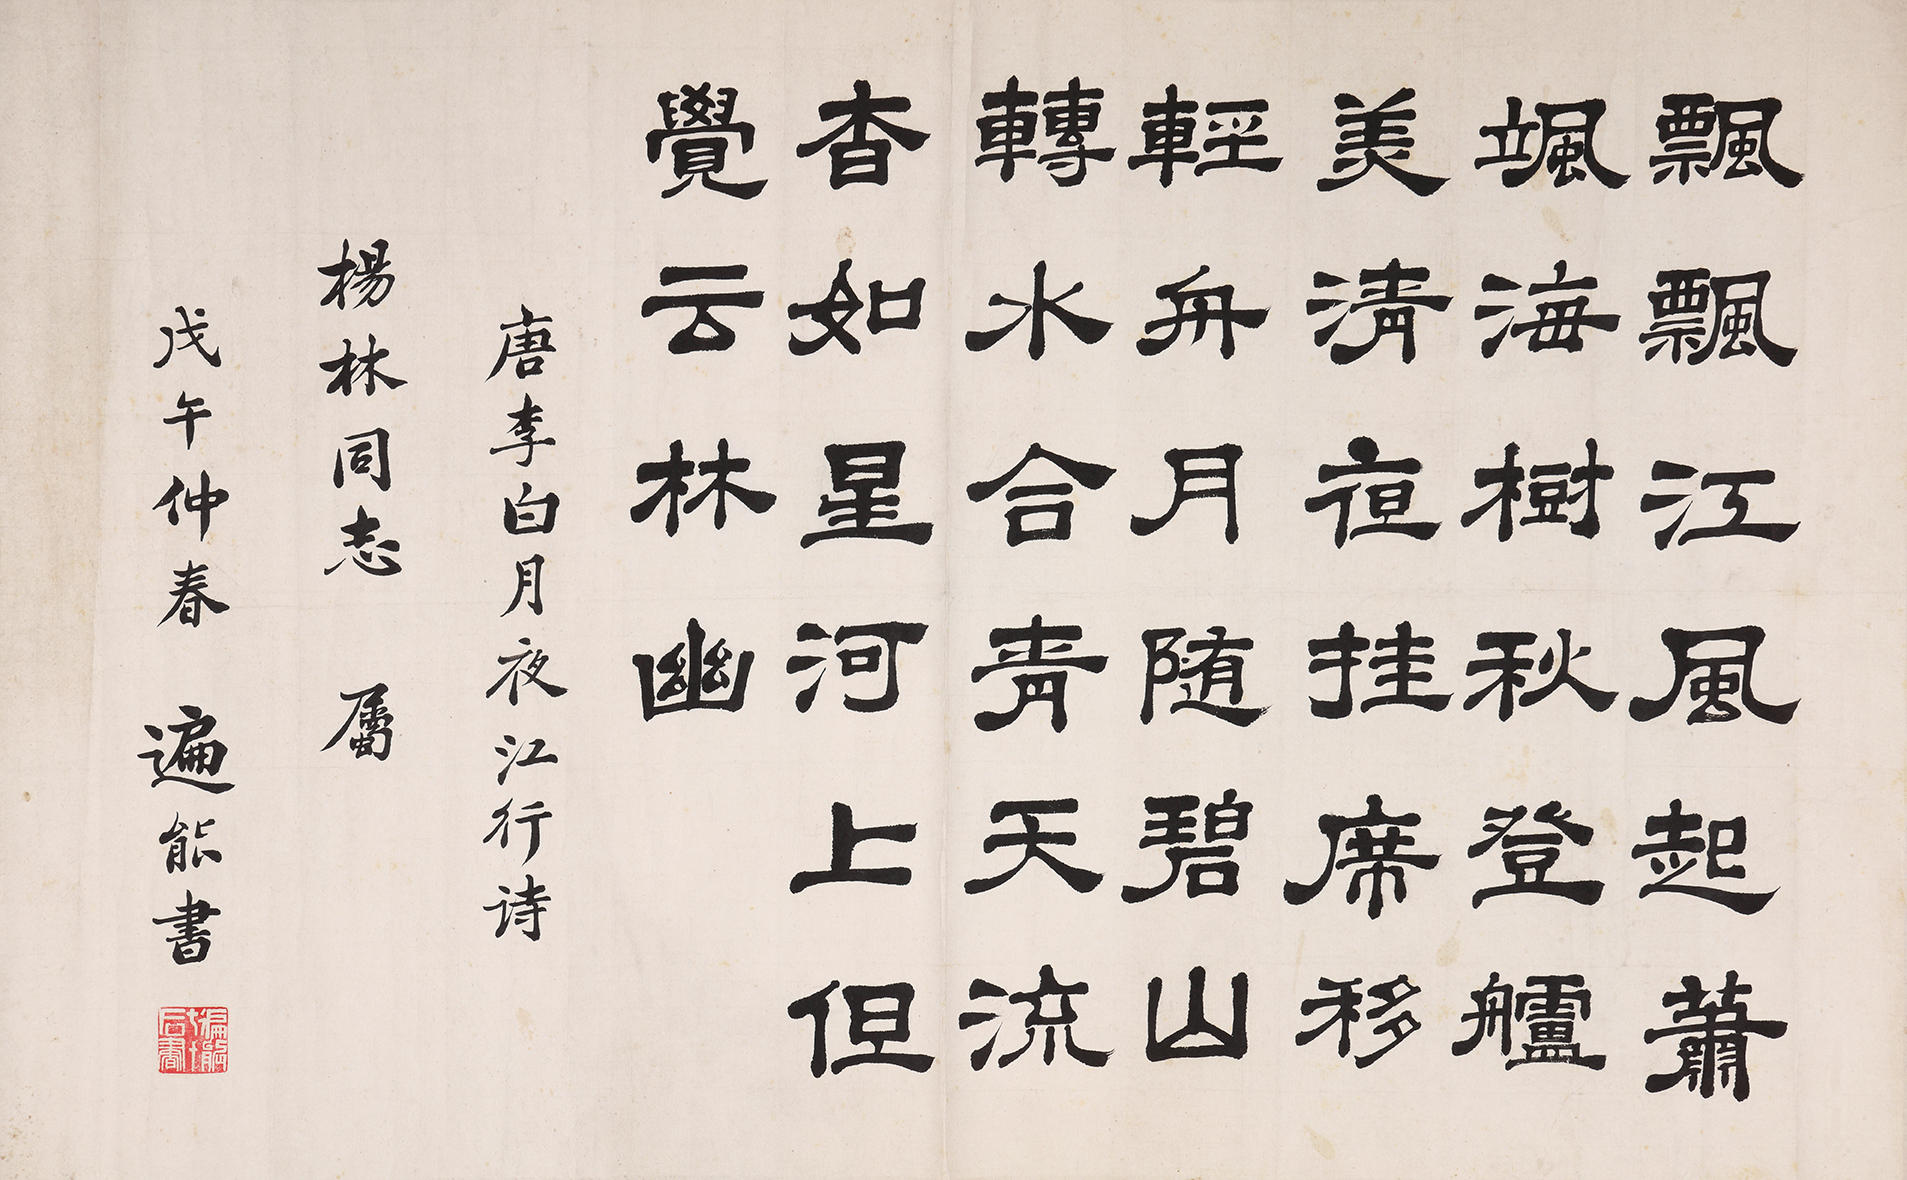 飄飄江風起蕭
颯海樹秋登艫
美清亱挂席移
輕舟月随碧山
轉水合青天流
杳如星河上但
覺云林幽
唐李白月夜江行诗
楊林同志 屬
戊午仲春 遍能書